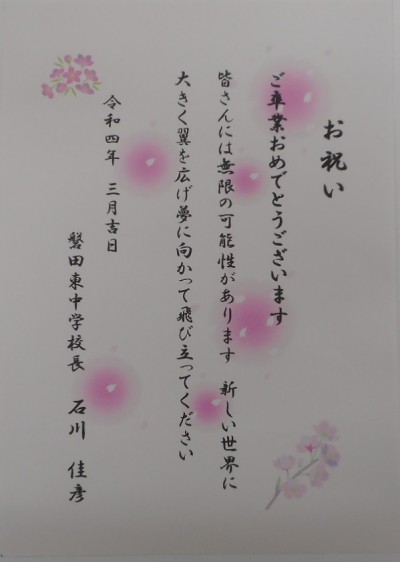 お祝い
ご卒業おめでとうございます
皆さんには無限の可能性があります　新しい世界に
大きく翼を広げ夢に向かって飛び立ってください
令和四年　三月吉日
磐田東中学校長　石川　佳彦